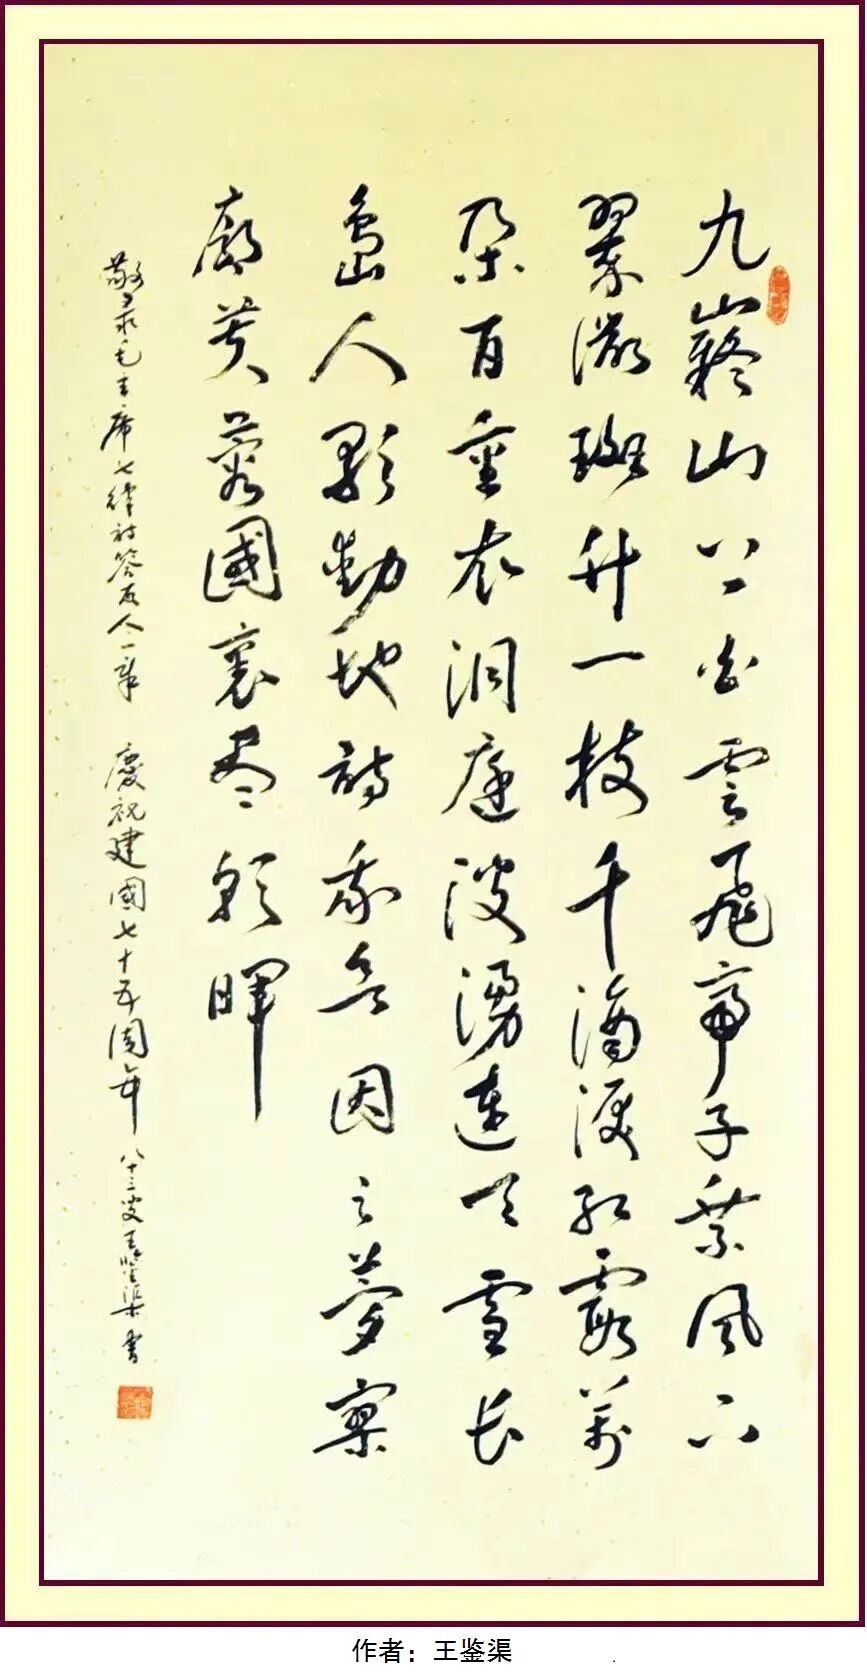 九嶷山上白雲飛帝子乘風下
翠微斑竹一枝千滴淚紅霞萬
朵百重衣洞庭波湧連天雪長
島人歌動地詩我欲因之夢寥
廓芙蓉國裏尽朝暉
敬录毛主席七律詩答友人一章 慶祝建國七十五周年 八十三叟王鑒渠書
作者：王鉴渠